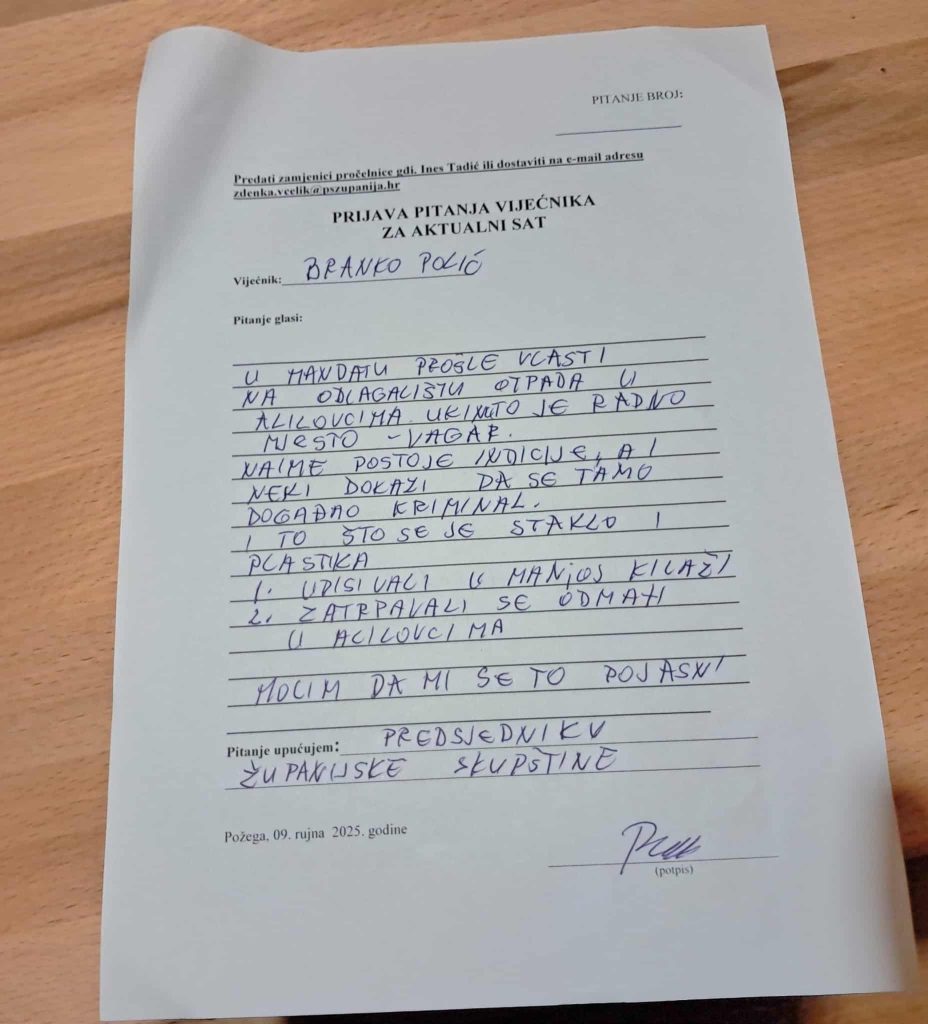 PITANJE BROJ:
Predati zamjenici pročelnice gđi. Ines Tadić ili dostaviti na e-mail adresu
zdenka.vcelik@pszupanija.hr
PRIJAVA PITANJA VIJEĆNIKA
ZA AKTUALNI SAT
Vijećnik: BRANKO POLIĆ
Pitanje glasi:
U MANDATU PROŠLE VLASTI
NA ODLAGALIŠTU OTPADA U
ALILOVCIMA UKINUTO JE RADNO
MJESTO - VAGAR.
NAIME POSTOJE INDICIJE, A I
NEKI DOKAZI DA SE TAMO
DOGAĐAO KRIMINAL.
I TO ŠTO SE JE STAKLO I
PLASTIKA
1. UPISIVALI U MANJOJ KILAŽI
2. ZATRPAVALI SE ODMAH
U ALILOVCIMA
MOLIM DA MI SE TO POJASNI
Pitanje upućujem: PREDSJEDNIKU
ŽUPANIJSKE SKUPŠTINE
Požega, 09. rujna 2025. godine
(potpis)